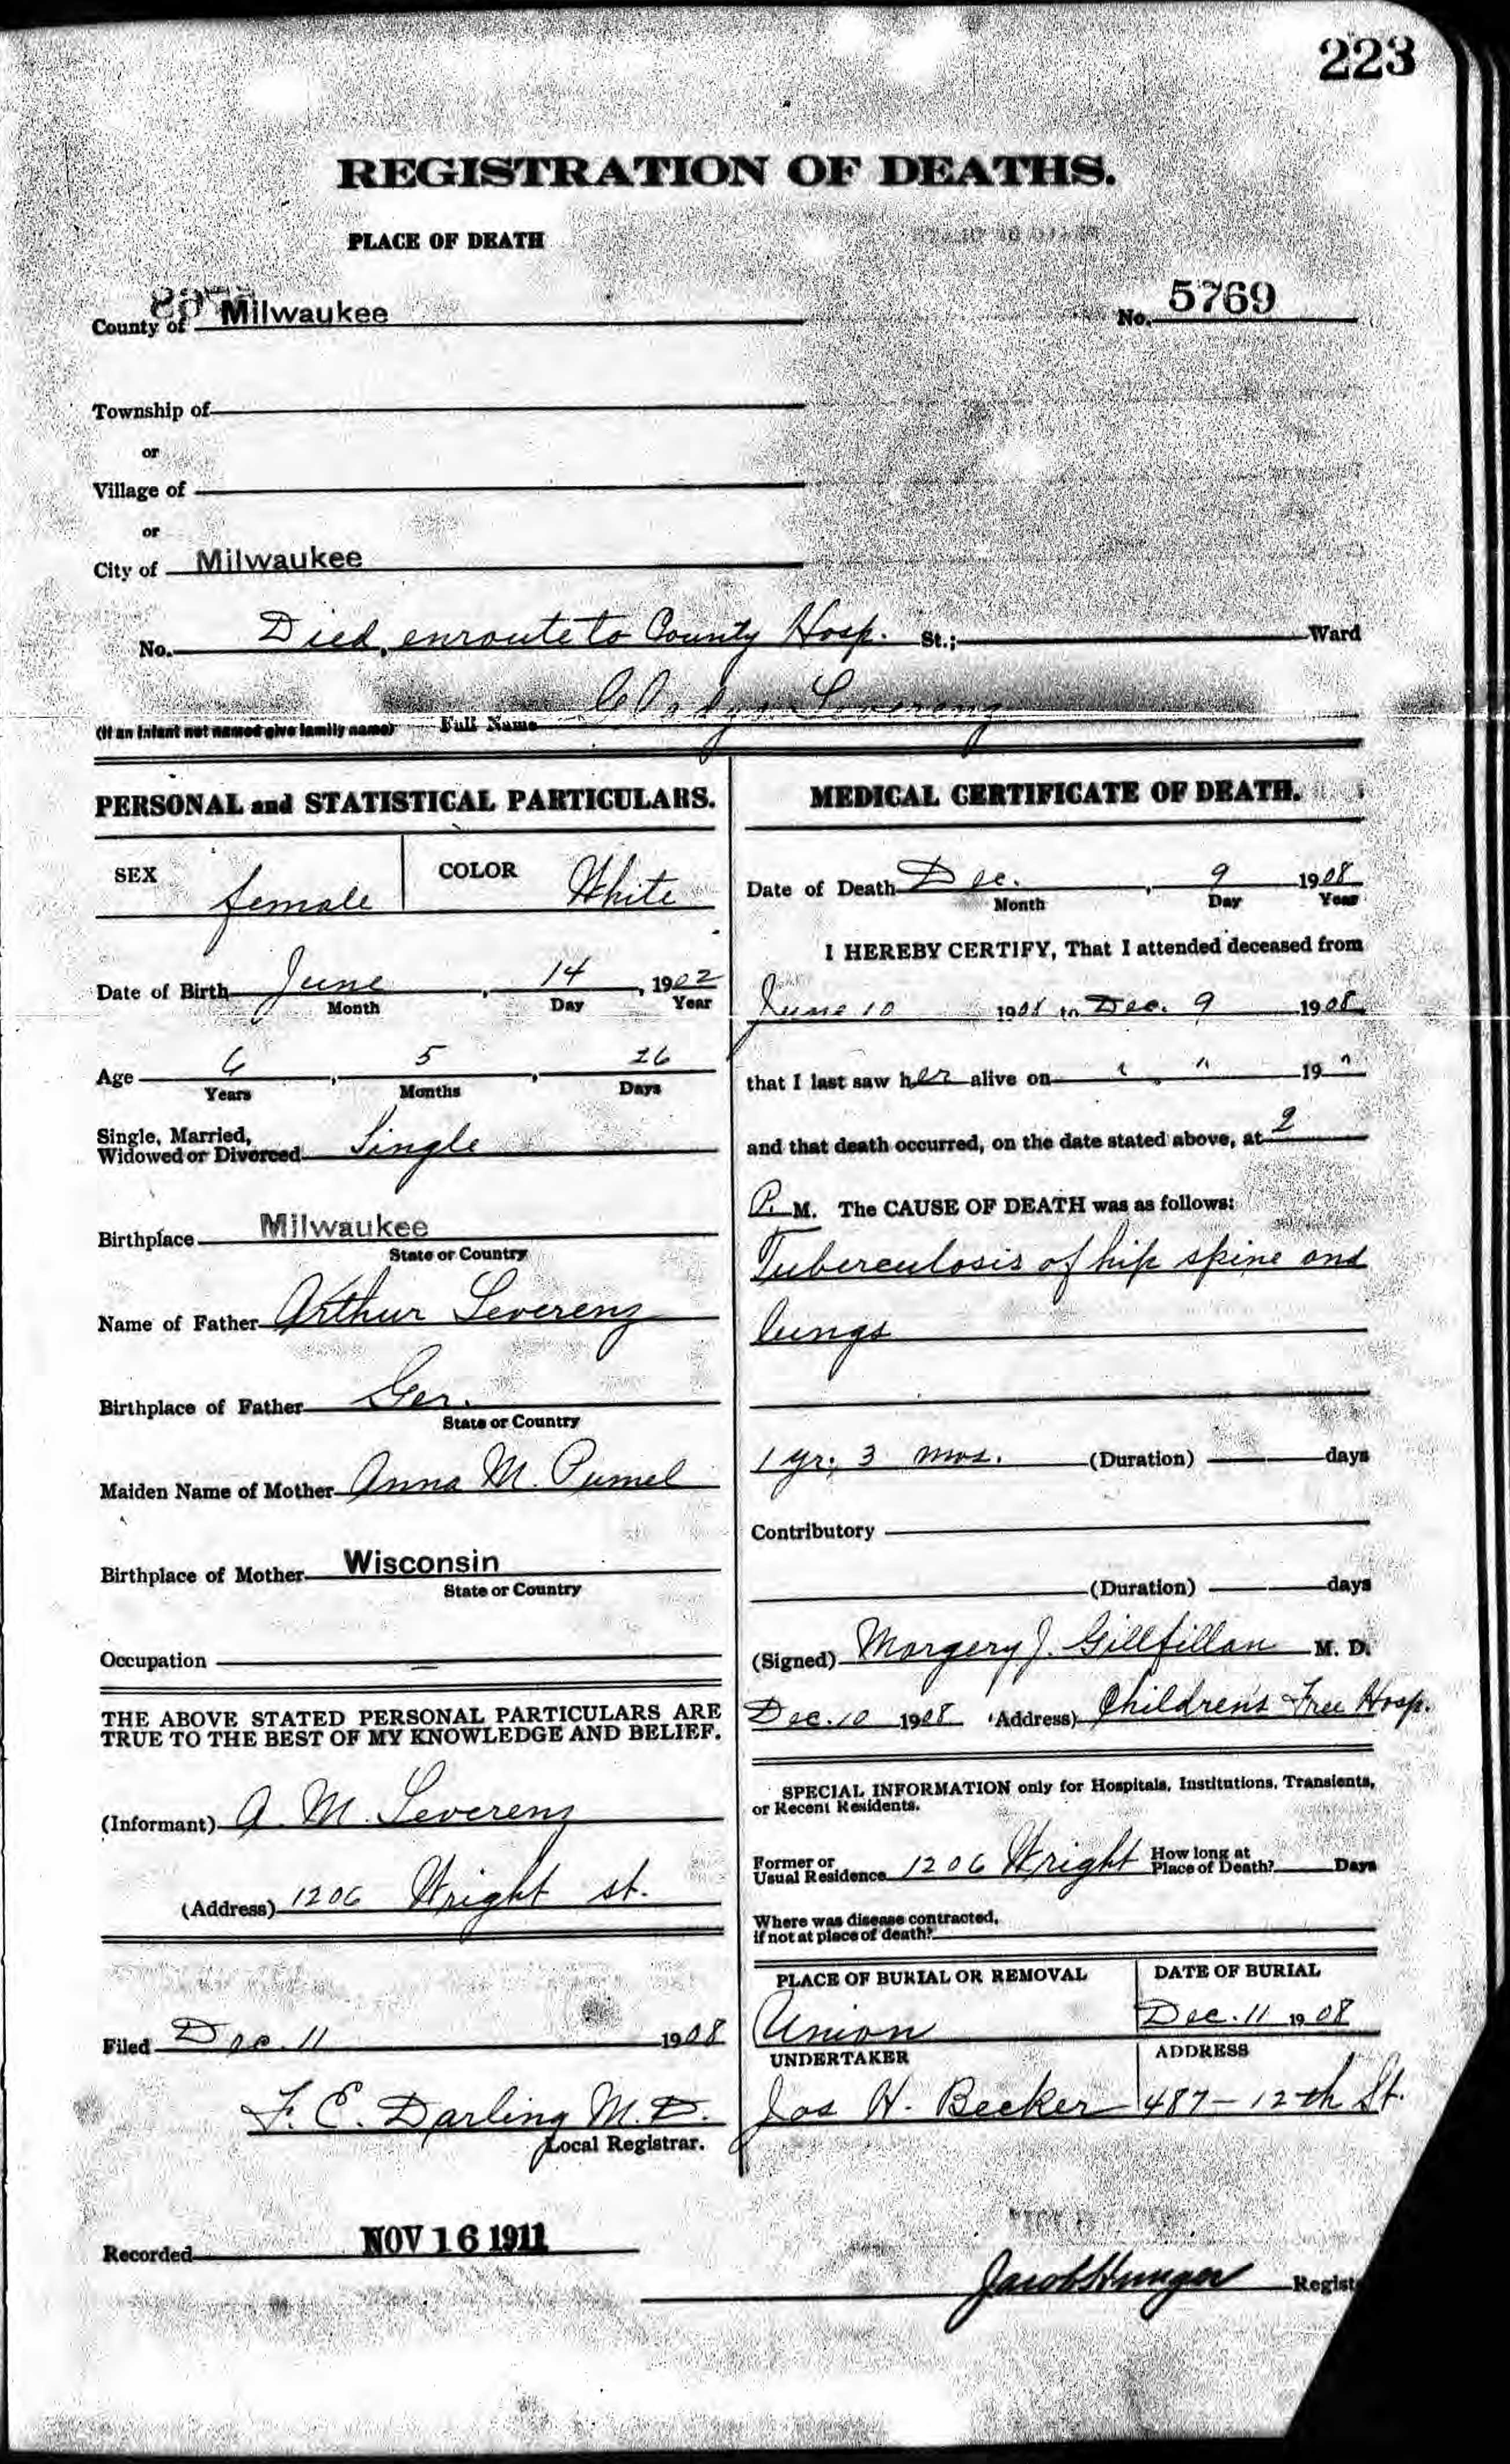 223
REGISTRATION OF DEATHS.
PLACE OF DEATH
County of Milwaukee
No. 5769
Township of
or
Village of
or
City of Milwaukee
No. Died, enroute to County Hosp. St.; Ward
(If an infant not named give family name) Full Name Gladys Leverenz
PERSONAL and STATISTICAL PARTICULARS.
SEX female COLOR White
Date of Birth June, 14, 1902
Month Day Year
Age 6, 5, 26
Years Months Days
Single, Married,
Widowed or Divorced Single
Birthplace Milwaukee
State or Country
Name of Father Arthur Leverenz
Birthplace of Father Ger.
State or Country
Maiden Name of Mother Anna M. Pumel
Birthplace of Mother Wisconsin
State or Country
Occupation
THE ABOVE STATED PERSONAL PARTICULARS ARE
TRUE TO THE BEST OF MY KNOWLEDGE AND BELIEF.
(Informant) A. M. Leverenz
(Address) 1206 Wright st.
Filed Dec. 11 1908
F. E. Darling M.D.
Local Registrar.
MEDICAL CERTIFICATE OF DEATH.
Date of Death Dec., 9 1908
Month Day Year
I HEREBY CERTIFY, That I attended deceased from
June 10 1908 to Dec. 9 1908
that I last saw her alive on " " 19 "
and that death occurred, on the date stated above, at 2
P. M. The CAUSE OF DEATH was as follows:
Tuberculosis of hip spine and
lungs
1 yr. 3 mos. (Duration) days
Contributory
(Duration) days
(Signed) Margery J. Gillfillan M. D.
Dec. 10 1908 (Address) Children's Free Hosp.
SPECIAL INFORMATION only for Hospitals, Institutions, Transients,
or Recent Residents.
Former or
Usual Residence 1206 Wright How long at
Place of Death? Days
Where was disease contracted,
if not at place of death?
PLACE OF BURIAL OR REMOVAL DATE OF BURIAL
Union Dec. 11 1908
UNDERTAKER ADDRESS
Jos H. Becker 487 - 12th St.
Recorded NOV 16 1911
Jacob Hunger Regist